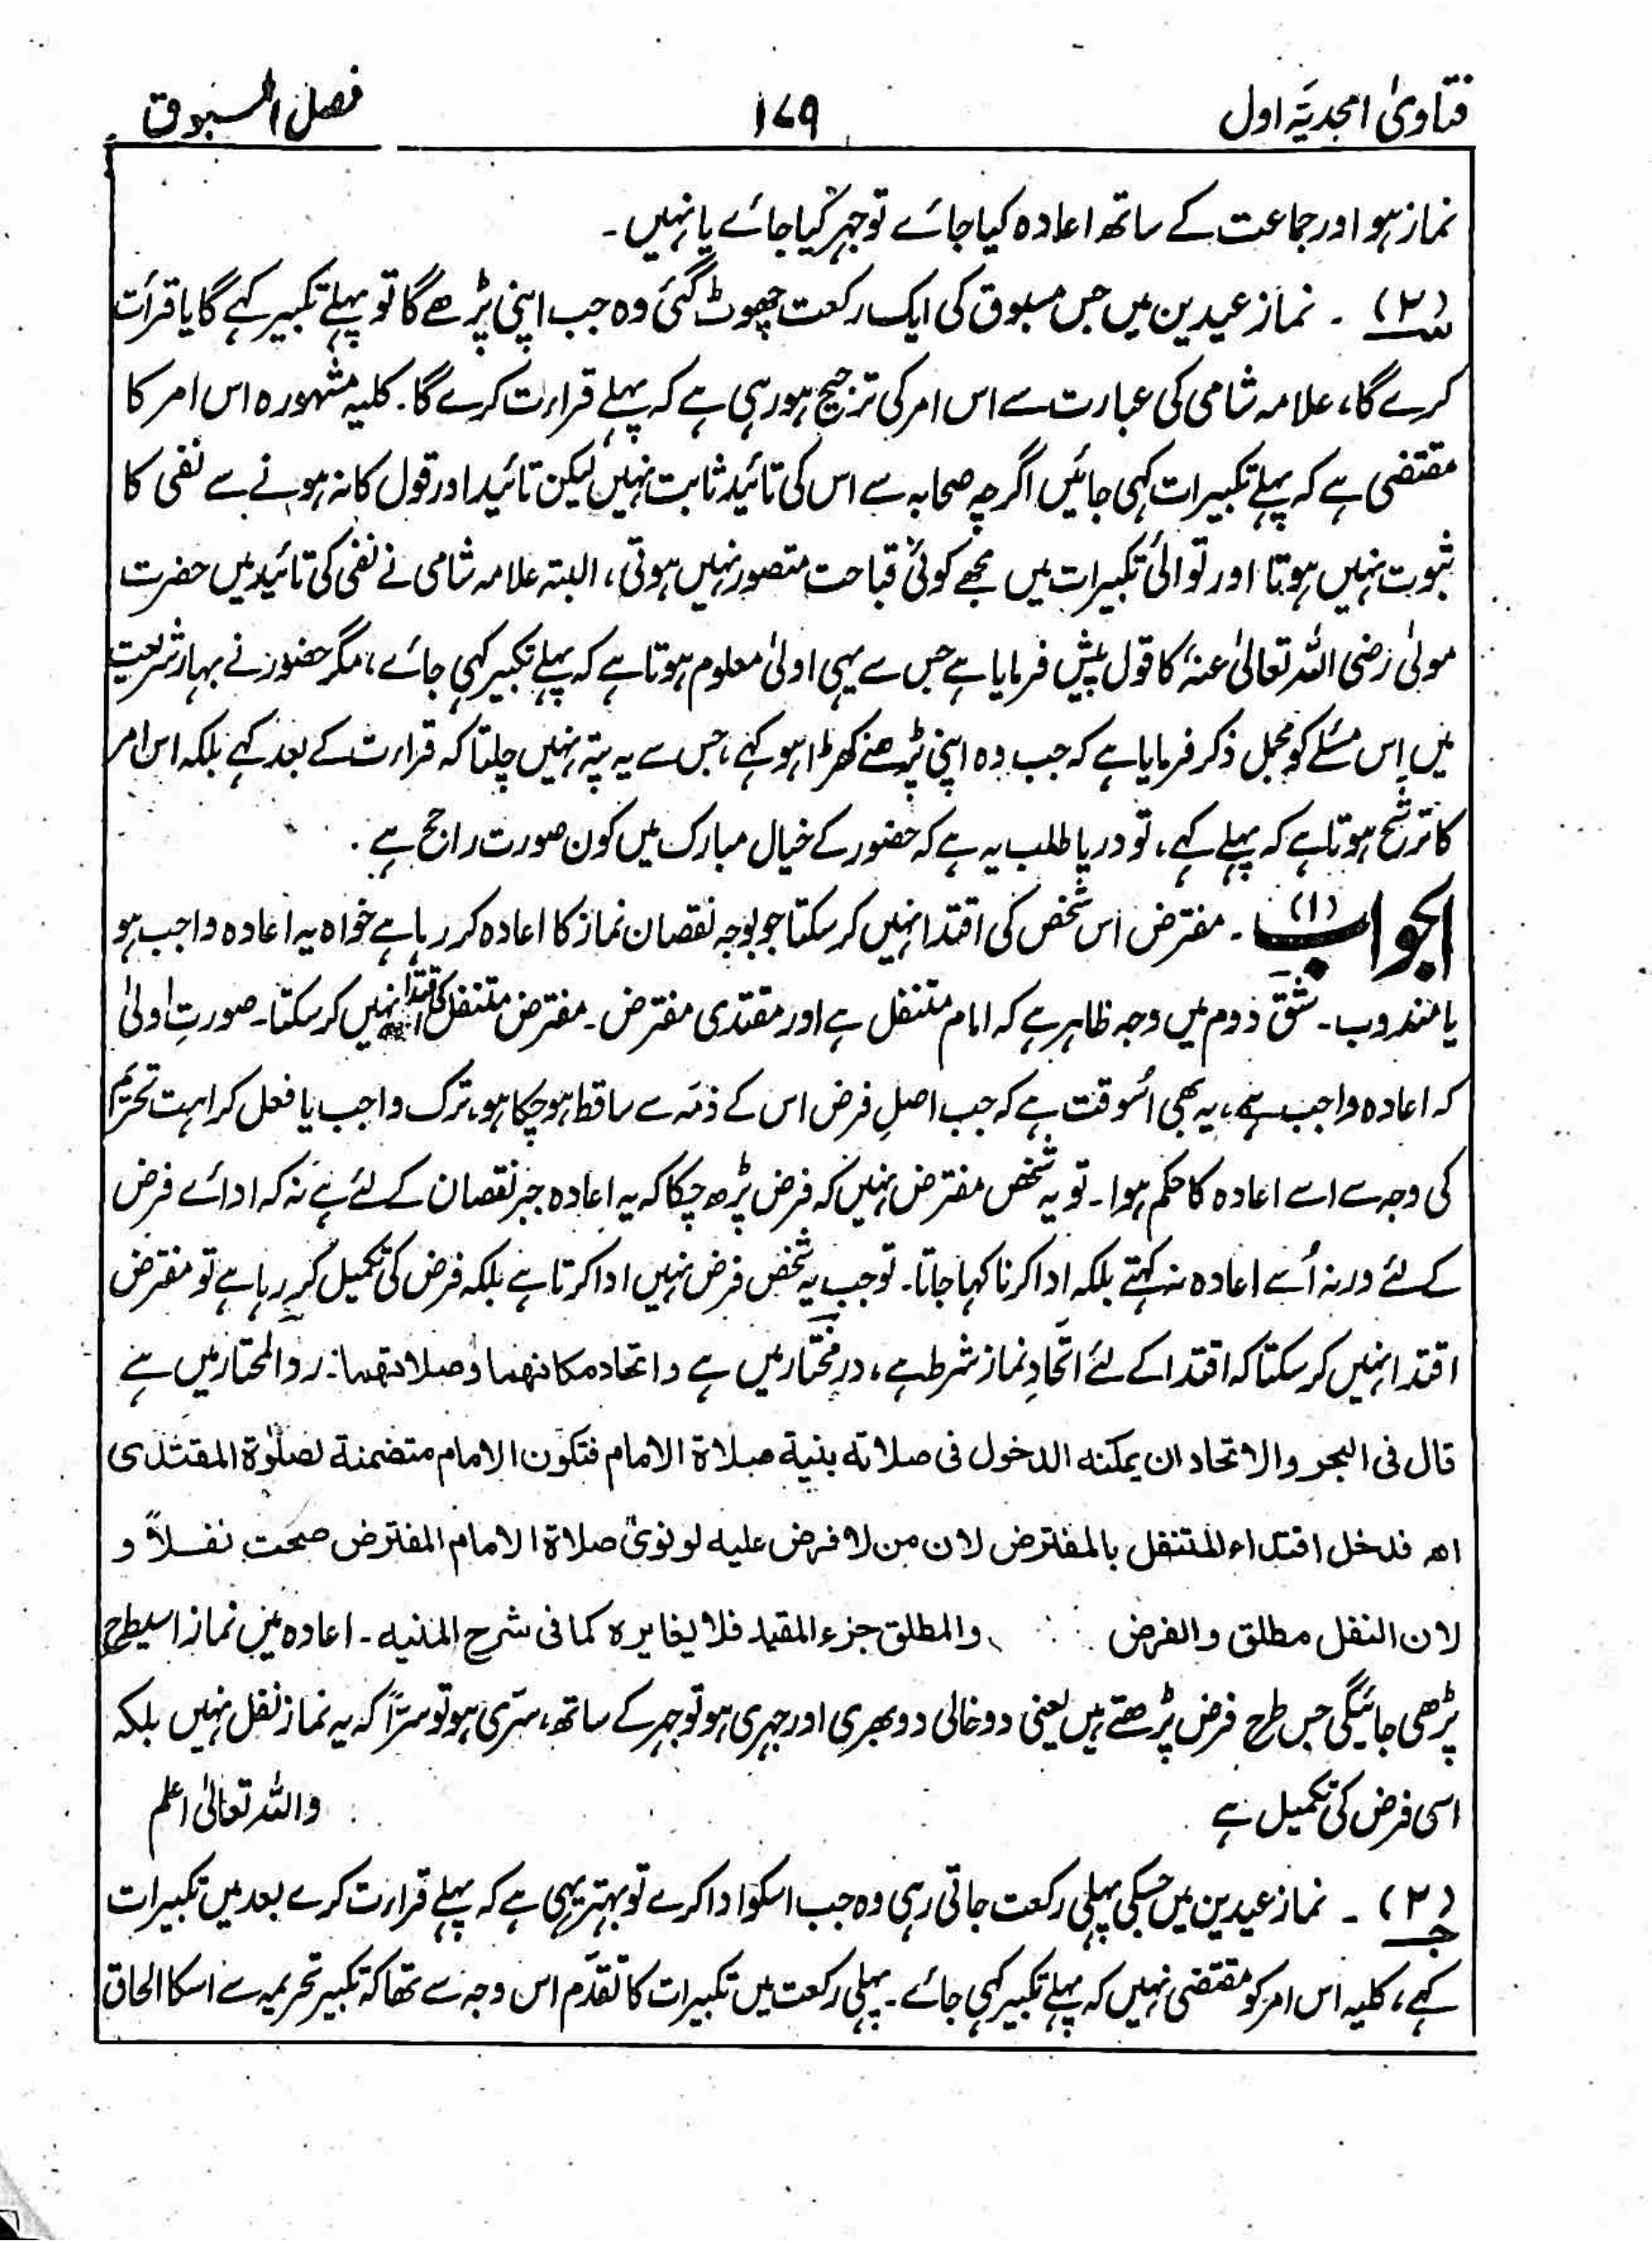 فتاویٰ امجدیہ اول ۱۷۹ فصل المسبوق
نماز ہو اور جماعت کے ساتھ اعادہ کیا جائے تو جہر کیا جائے یا نہیں۔
(۲)۔ نماز عیدین میں جس مسبوق کی ایک رکعت چھوٹ گئی وہ جب اپنی پڑھے گا تو پہلے تکبیر کہے گا یا قرأت
کرے گا، علامہ شامی کی عبارت سے اس امر کی ترجیح ہو رہی ہے کہ پہلے قراءت کرے گا۔ کلیہ مشہورہ اس امر کا
مقتضی ہے کہ پہلے تکبیرات کہی جائیں اگرچہ صحابہ سے اس کی تائید ثابت نہیں لیکن تائید اور قول کا نہ ہونے سے نفی کا
ثبوت نہیں ہوتا اور توالئ تکبیرات میں مجھے کوئی قباحت متصور نہیں ہوتی، البتہ علامہ شامی نے نفی کی تائید میں حضرت
مولیٰ رضی اللہ تعالیٰ عنہ کا قول پیش فرمایا ہے جس سے یہی اولیٰ معلوم ہوتا ہے کہ پہلے تکبیر کہی جائے، مگر حضور نے بہار شریعت
میں اس مسئلے کو مجمل ذکر فرمایا ہے کہ جب وہ اپنی پڑھنے کھڑا ہو کہے، جس سے یہ پتہ نہیں چلتا کہ قراءت کے بعد کہے بلکہ اس امر
کا ترشح ہوتا ہے کہ پہلے کہے، تو دریا طلب یہ ہے کہ حضور کے خیال مبارک میں کون صورت راجح ہے۔
الجواب (۱)۔ مفترض اس شخص کی اقتدا نہیں کر سکتا جو بوجہ نقصان نماز کا اعادہ کر رہا ہے خواہ یہ اعادہ واجب ہو
یا مندوب۔ شق دوم میں وجہ ظاہر ہے کہ امام متنفل ہے اور مقتدی مفترض۔ مفترض متنفل کی اقتدا نہیں کر سکتا۔ صورتِ اولیٰ
کہ اعادہ واجب ہے، یہ بھی اُسوقت ہے کہ جب اصلِ فرض اس کے ذمہ سے ساقط ہو چکا ہو، ترک واجب یا فعل کراہت تحریم
کی وجہ سے اسے اعادہ کا حکم ہوا۔ تو یہ شخص مفترض نہیں کہ فرض پڑھ چکا کہ یہ اعادہ جبر نقصان کے لئے ہے نہ کہ ادائے فرض
کے لئے ورنہ اُسے اعادہ نہ کہتے بلکہ ادا کرنا کہا جاتا۔ تو جب یہ شخص فرض نہیں ادا کرتا ہے بلکہ فرض کی تکمیل کر رہا ہے تو مفترض
اقتدا نہیں کر سکتا کہ اقتدا کے لئے اتحادِ نماز شرط ہے، درمختار میں ہے واتحاد مکانهما وصلاتهما۔ ردالمحتار میں ہے
قال فی البحر والاتحاد ان یمکنه الدخول فی صلاته بنیة صلاة الامام فتکون الامام متضمنة لصلوٰة المقتدی
اھ فدخل اقتداء المتنفل بالمفترض لان من لا فرض علیه لو نویٰ صلاة الامام المفترض صحت نفلاً و
لان النفل مطلق والفرض ، والمطلق جزء المقید فلا یغایره کما فی شرح المنیه۔ اعادہ میں نماز اسیطرح
پڑھی جائیگی جس طرح فرض پڑھتے ہیں یعنی دو خالی دو بھری اور جہری ہو تو جہر کے ساتھ، سرّی ہو تو سرّاً کہ یہ نماز نفل نہیں بلکہ
اسی فرض کی تکمیل ہے واللہ تعالیٰ اعلم
(۲)۔ نماز عیدین میں جسکی پہلی رکعت جاتی رہی وہ جب اسکو ادا کرے تو بہتر یہی ہے کہ پہلے قراءت کرے بعد میں تکبیرات
کہے، کلیہ اس امر کو مقتضی نہیں کہ پہلے تکبیر کہی جائے۔ پہلی رکعت میں تکبیرات کا تقدّم اس وجہ سے تھا کہ تکبیر تحریمہ سے اسکا الحاق